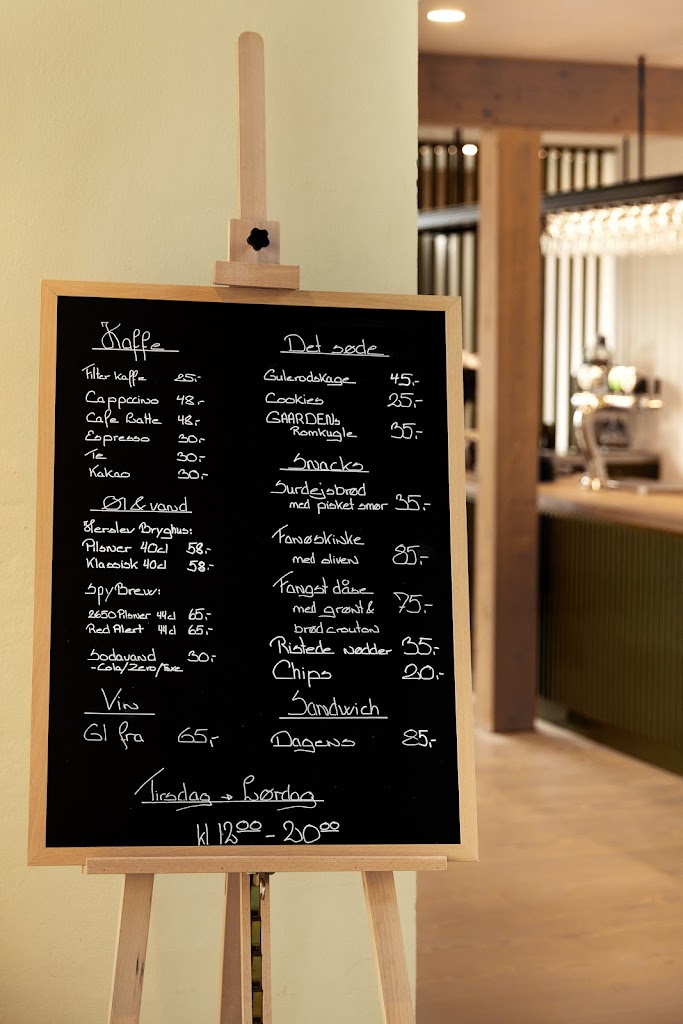 Kaffe
Filter kaffe 25,-
Cappccino 48,-
Cafe Latte 48,-
Espresso 30,-
Te 30,-
Kakao 30,-
Øl & vand
Herslev Bryghus:
Pilsner 40cl 58,-
Klassisk 40cl 58,-
Spy Brew:
2650 Pilsner 44cl 65,-
Red Alert 44cl 65,-
Sodavand 30,-
-Cola/Zero/Faxe
Vin
Gl fra 65,-
Det søde
Gulerodskage 45,-
Cookies 25,-
GAARDENs
Romkugle 35,-
Snacks
Surdejsbrød
med pisket smør 35,-
Fanøskinke
med oliven 85,-
Fangst dåse
med grønt &
brødcrouton 75,-
Ristede nødder 35,-
Chips 20,-
Sandwich
Dagens 85,-
Tirsdag → Lørdag
kl 12⁰⁰ - 20⁰⁰